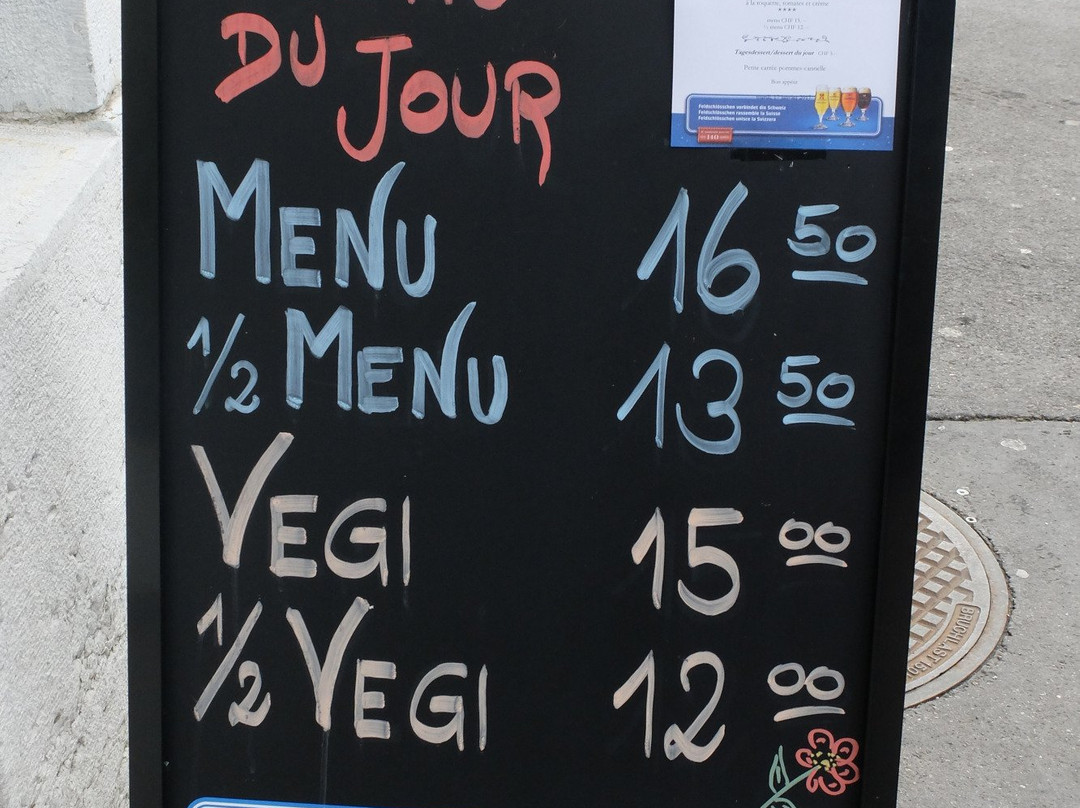 DU
JOUR
MENU 16 50
1/2 MENU 13 50
VEGI 15 00
1/2 VEGI 12 00
à la roquette, tomates et crème
****
menu CHF 15.-
½ menu CHF 12.-
Tagesdessert/dessert du jour CHF
Bon appetit
Feldschlösschen verbindet die Schweiz
Feldschlösschen rassemble la Suisse
Feldschlösschen unisce la Svizzera
140
BRUCHLAST